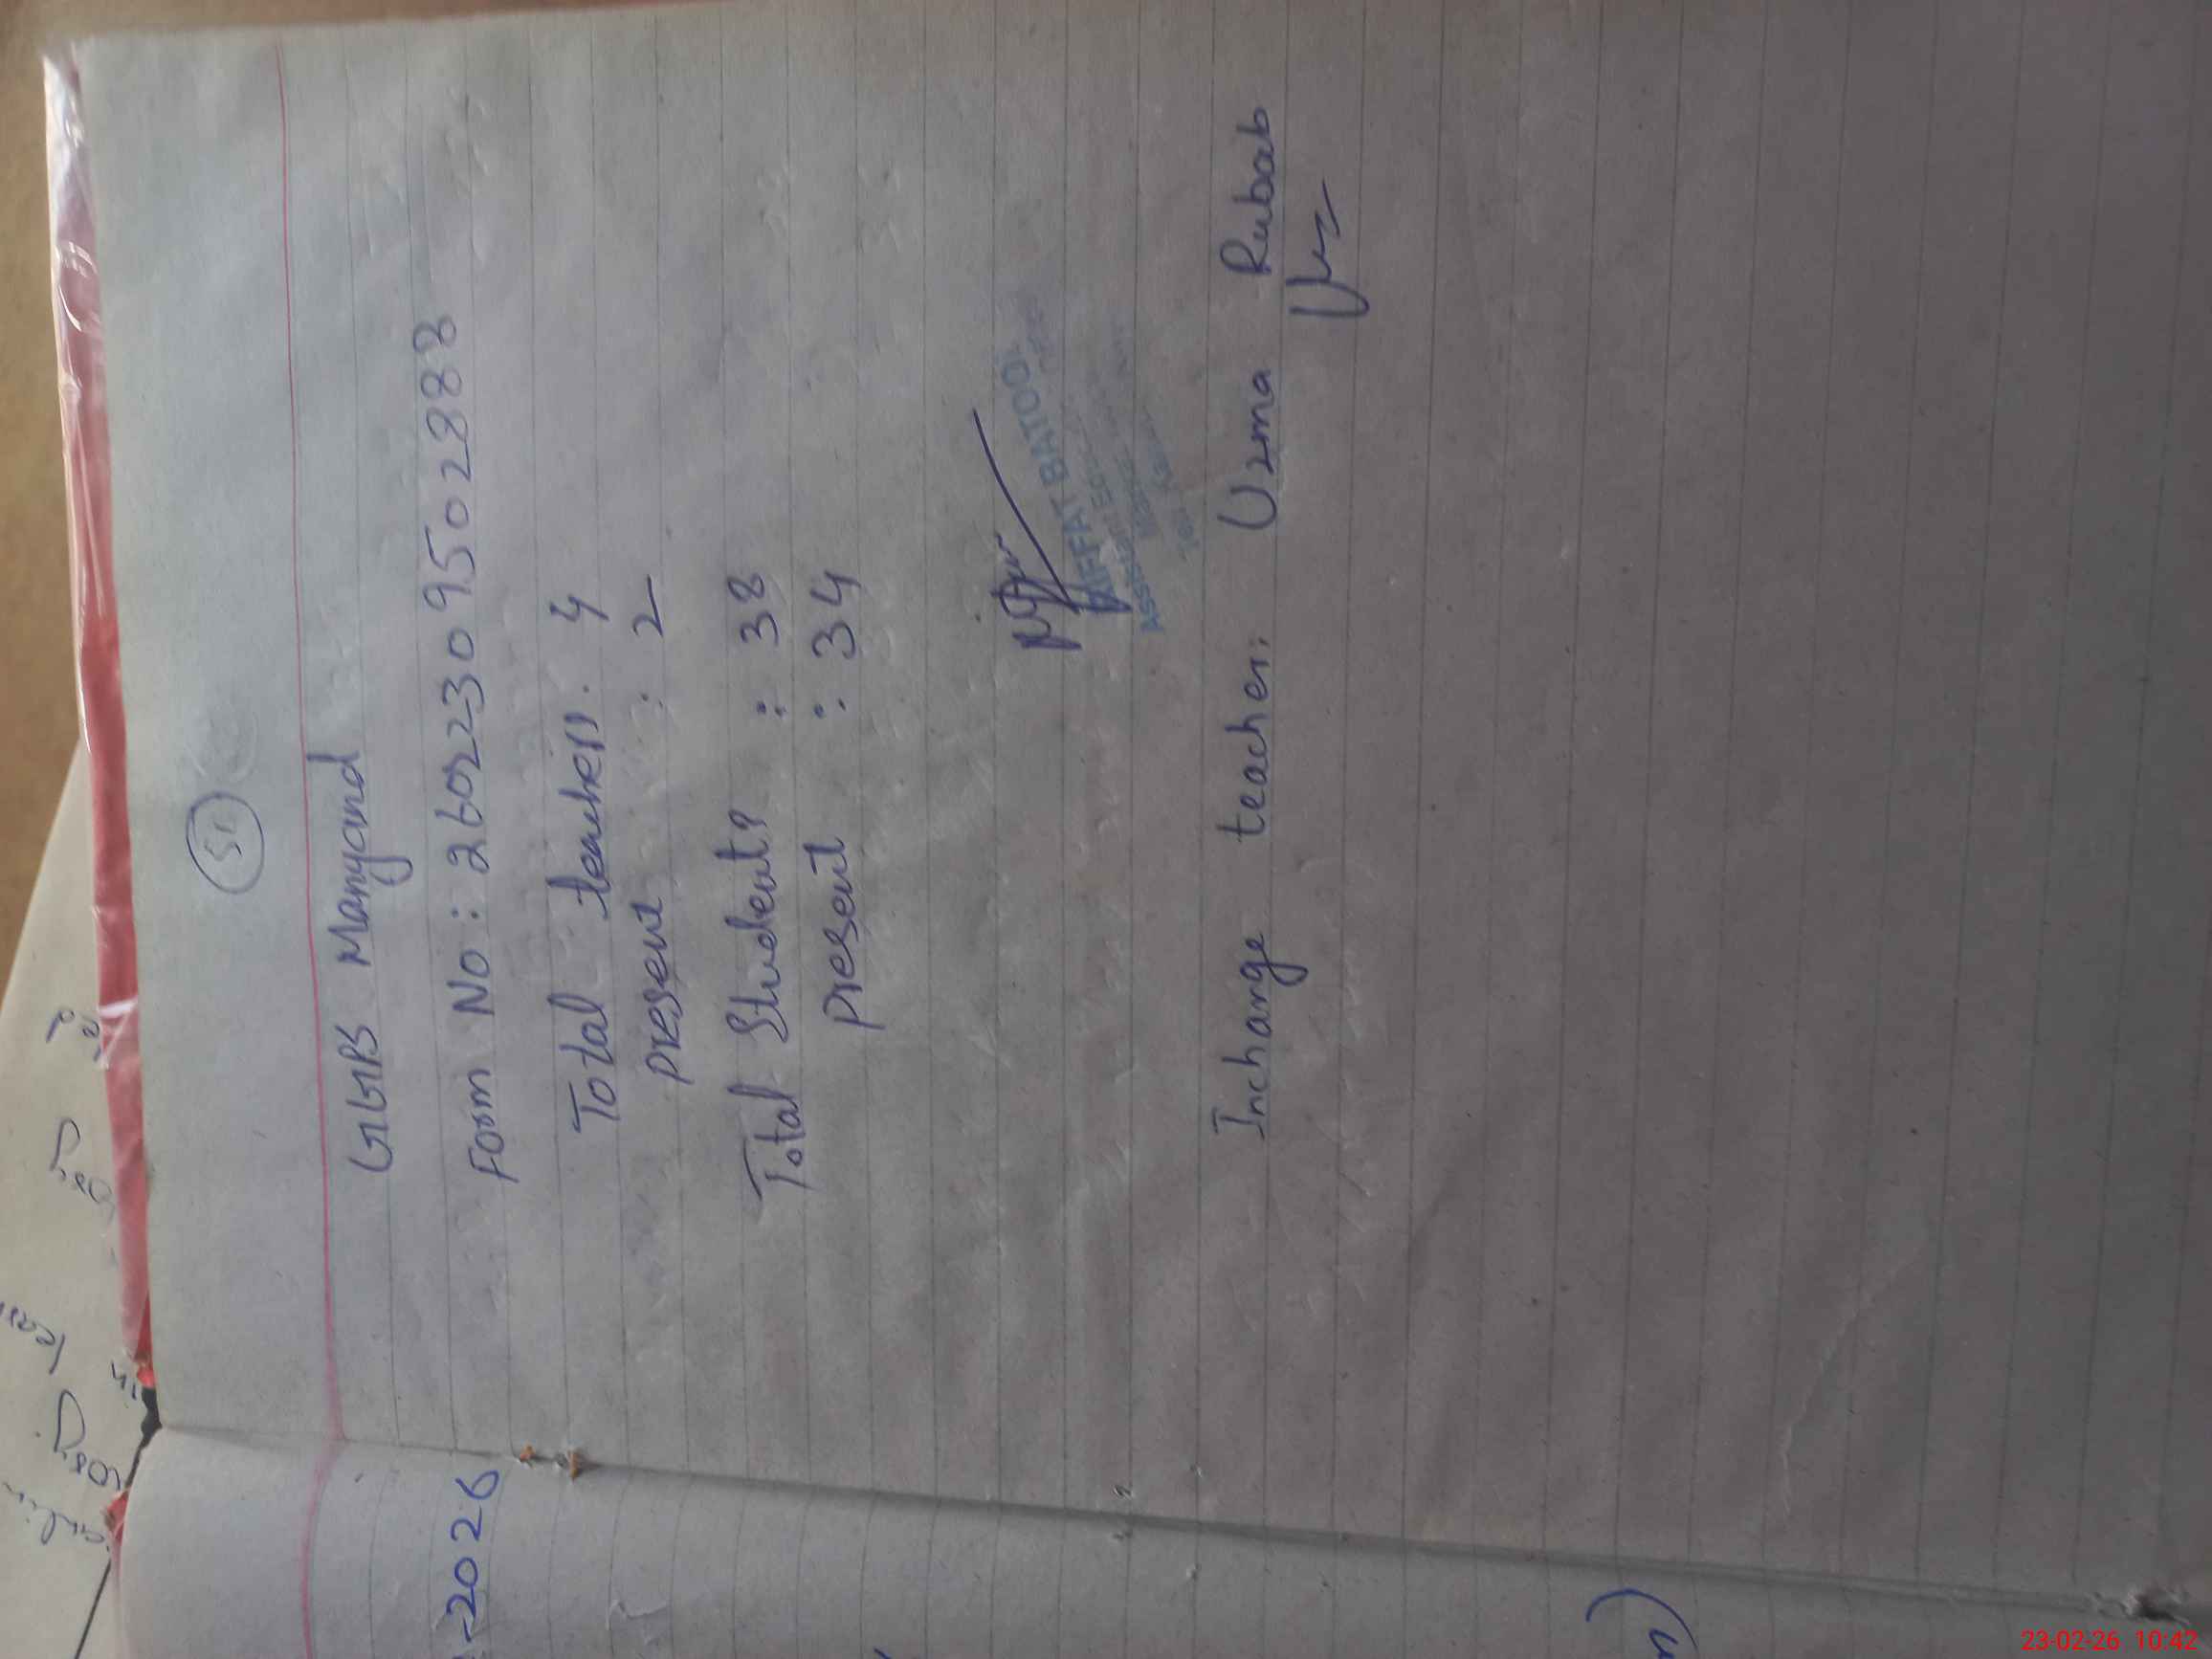 51
GGPS Manyand
Form No: 26022309502888
Total teachers. 4
present : 2
Total Students : 38
present : 34
RIFFAT BATOOL
Incharge teacher: Uzma Rubab
-2026
23-02-26 10:42